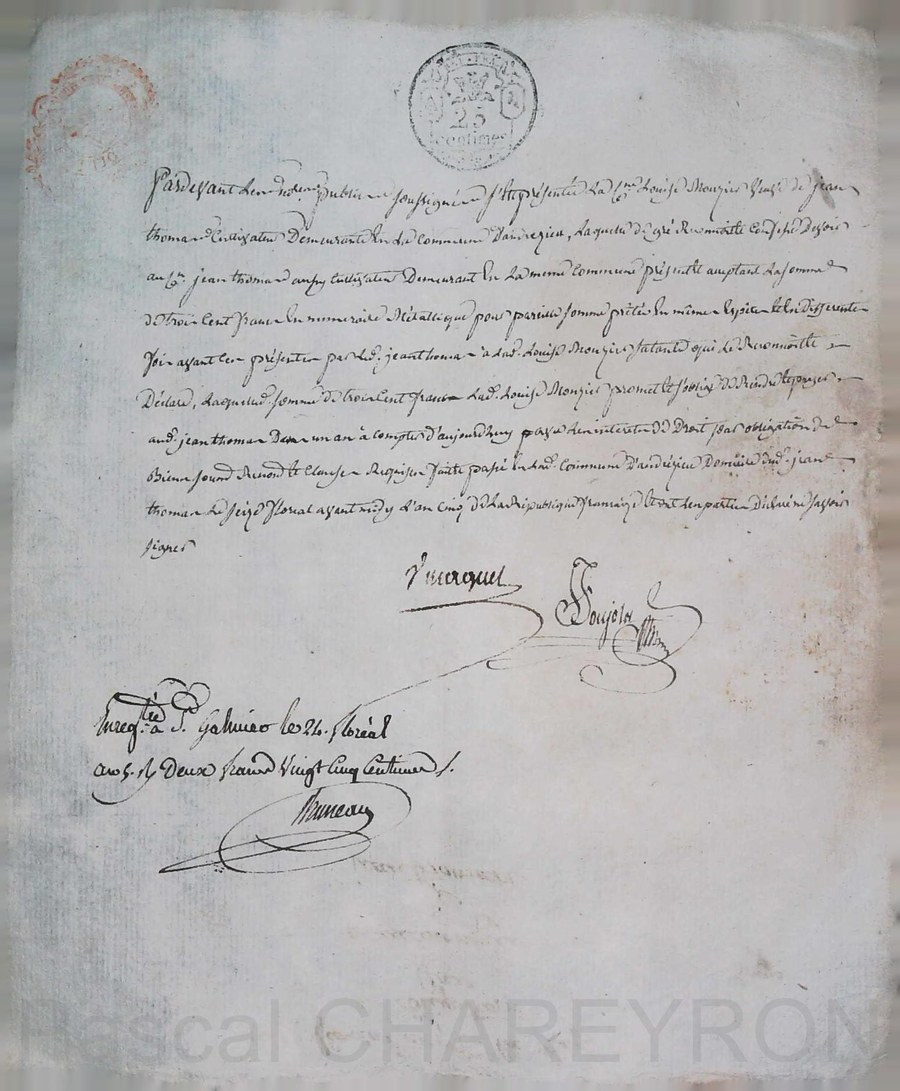 25
centimes
Pardevant les no.res publics soussignés s'est présentée La C.ne Louise Monzier Veuve de jean
thomas Cultivateur Demeurante En La Commune D'andrezieu, Laquelle de gré Reconnoitre Confesse Devoir
au C.n jean thomas Cultivateur Demeurant En La meme Commune présent acceptant La somme
de trois Cent francs En numeraire Métallique pour pareille somme prétée En même Espèce Et En differentes
fois avant Ces présentes par Led. jean thomas a Lad. Louise Monzier Ainsi qu'elle Le Reconnoitre
Déclare, Laquelle d. somme de trois Cent francs Lad. Louise Monzier promet Et s'oblige de Rendre Et payer
aud. jean thomas Dans un an à Compter d'aujourdhuy avec Les interets De Droit sous obligation de
Biens soumd Renond Et Clauses Requises fait Et passé En Lad. Commune D'andrezieu Domicile dud. jean
thomas Le seize floreal avant midy L'an Cinq De La République française Et ont Les parties Déclaré ne savoir
signer
Enreg.tré à S.t Galmier le 24 floréal
an 5. R Deux francs Vingt Cinq Centimes
Pascal CHAREYRON